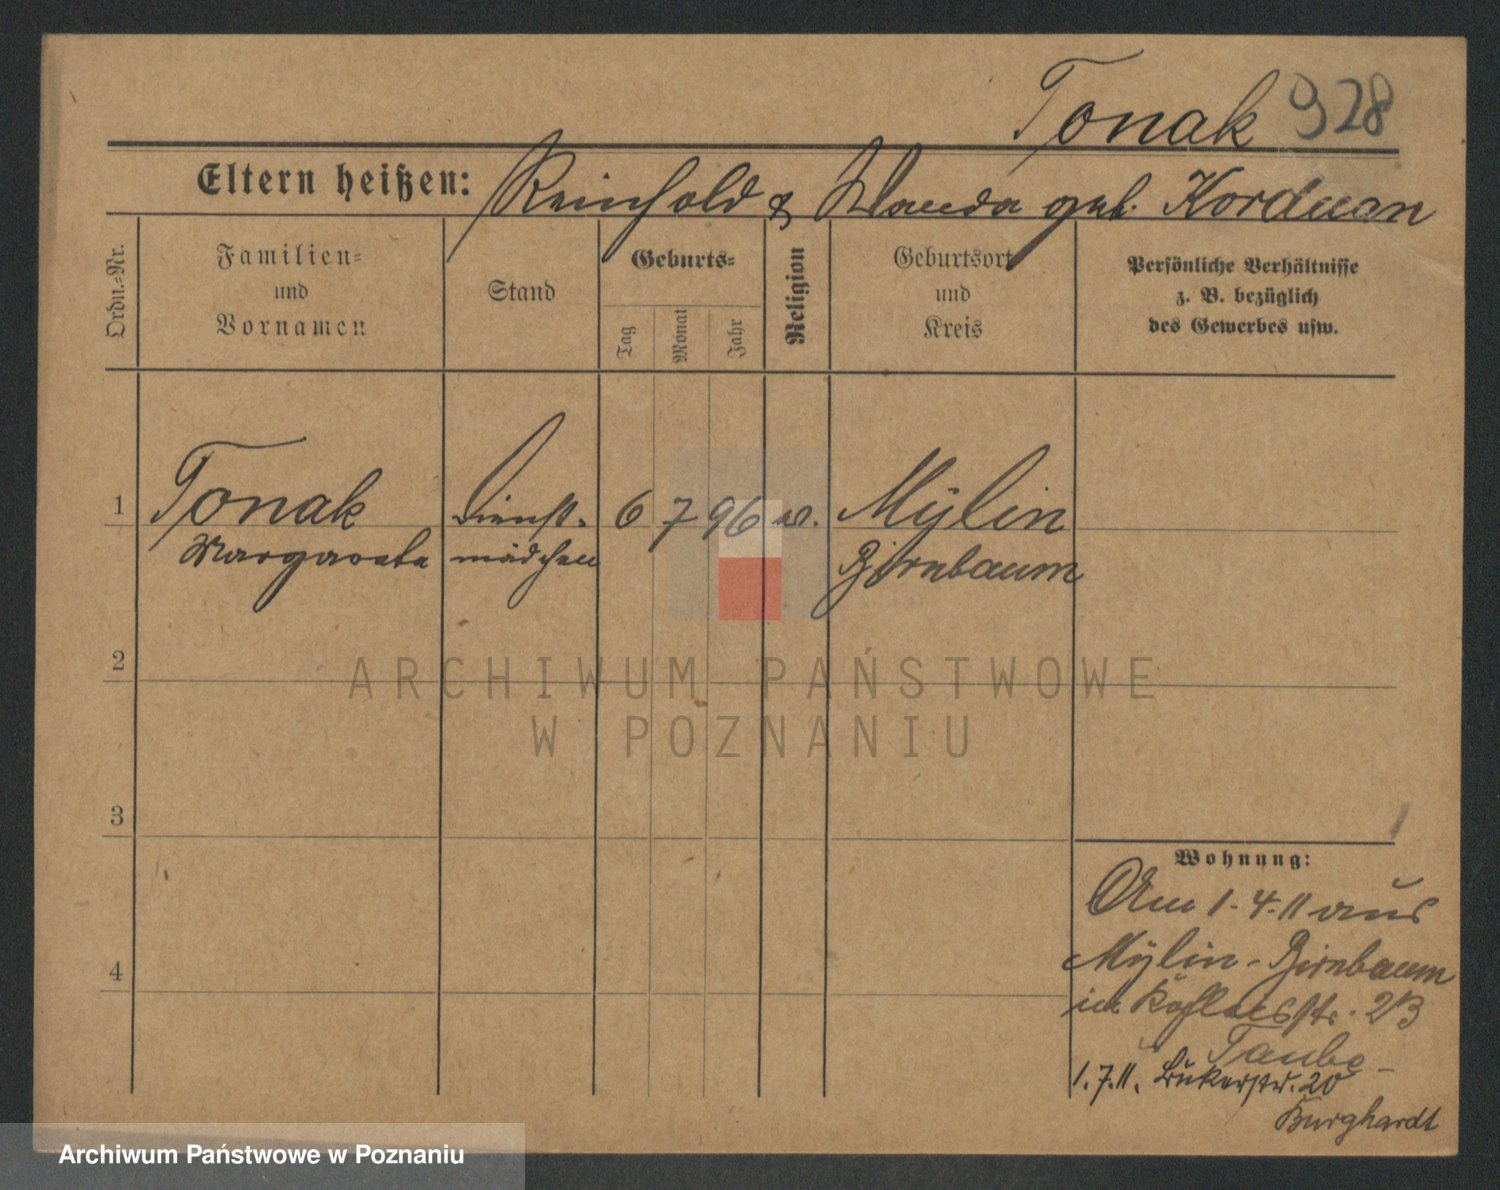 Tonak 928
Eltern heißen: Reinhold & Wanda geb. Korduan
Ordn.-Nr.
Familien-
und
Vornamen
Stand
Geburts-
Tag
Monat
Jahr
Religion
Geburtsort
und
Kreis
Persönliche Verhältnisse
z. B. bezüglich
des Gewerbes usw.
1 Tonak Dienst- 6 7 96 ev. Mÿlin
Margarete mädchen Birnbaum
2
ARCHIWUM PAŃSTWOWE
W POZNANIU
3
Wohnung:
Am 1.4.11 aus
Mÿlin-Birnbaum
in 23
4
Taube
1.7.11. 20
Burghardt
Archiwum Państwowe w Poznaniu